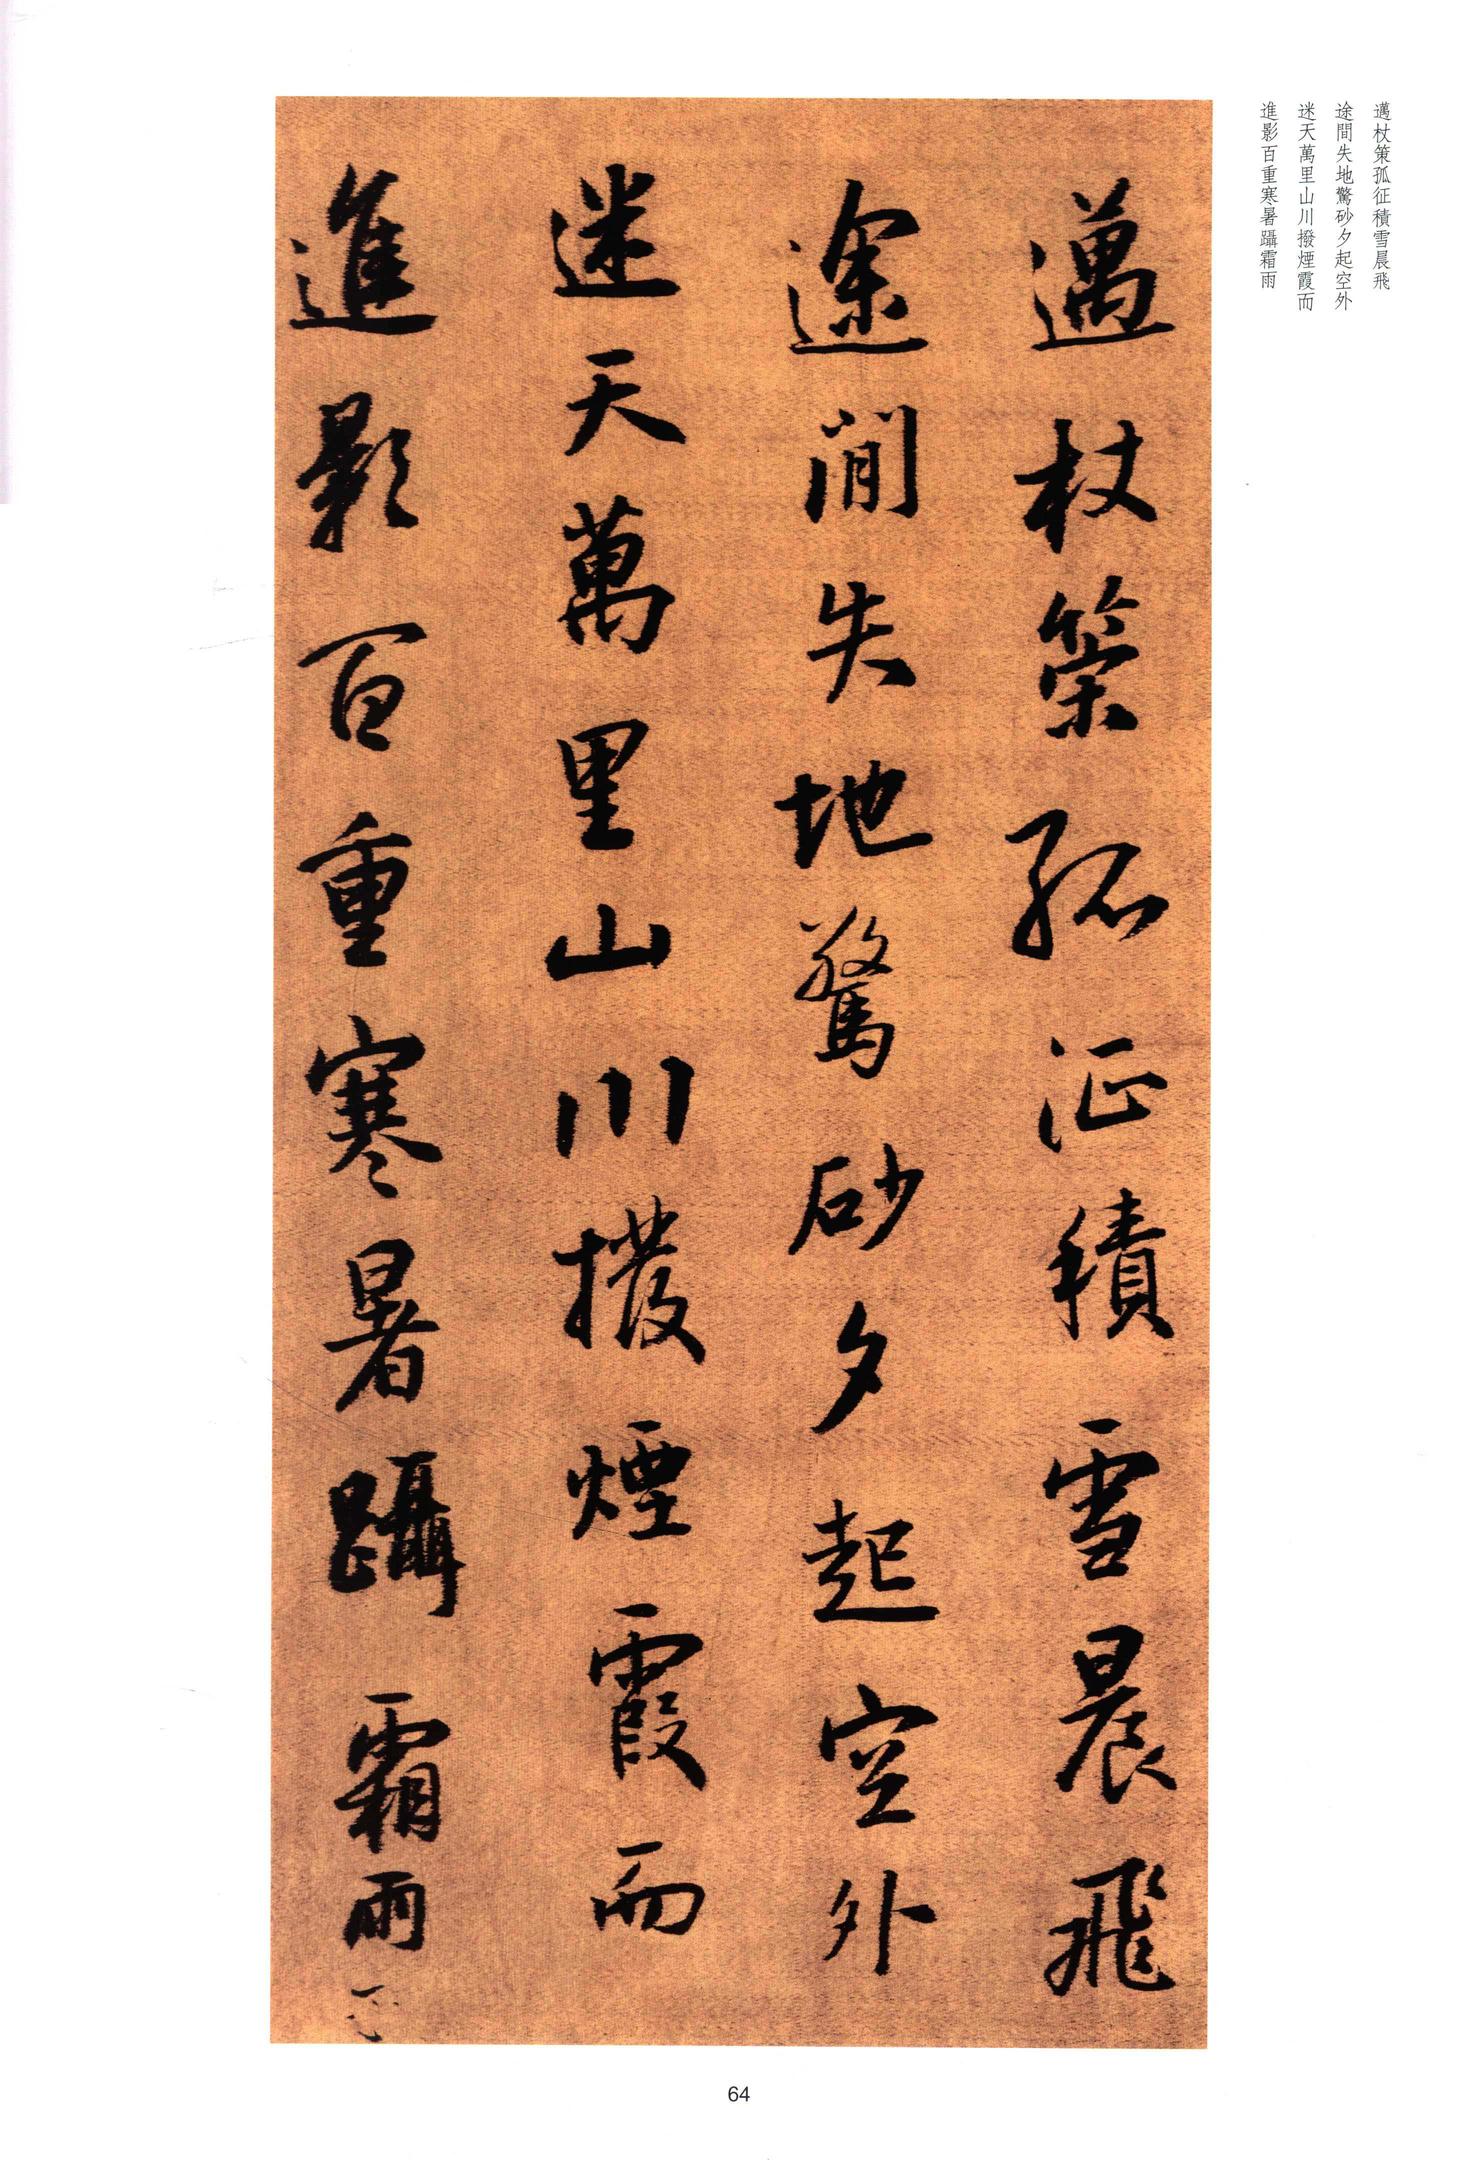 邁杖策孤征積雪晨飛
途間失地驚砂夕起空外
迷天萬里山川撥煙霞而
進影百重寒暑躡霜雨
邁杖策孤征積雪晨飛
途間失地驚砂夕起空外
迷天萬里山川撥煙霞而
進影百重寒暑躡霜雨
64